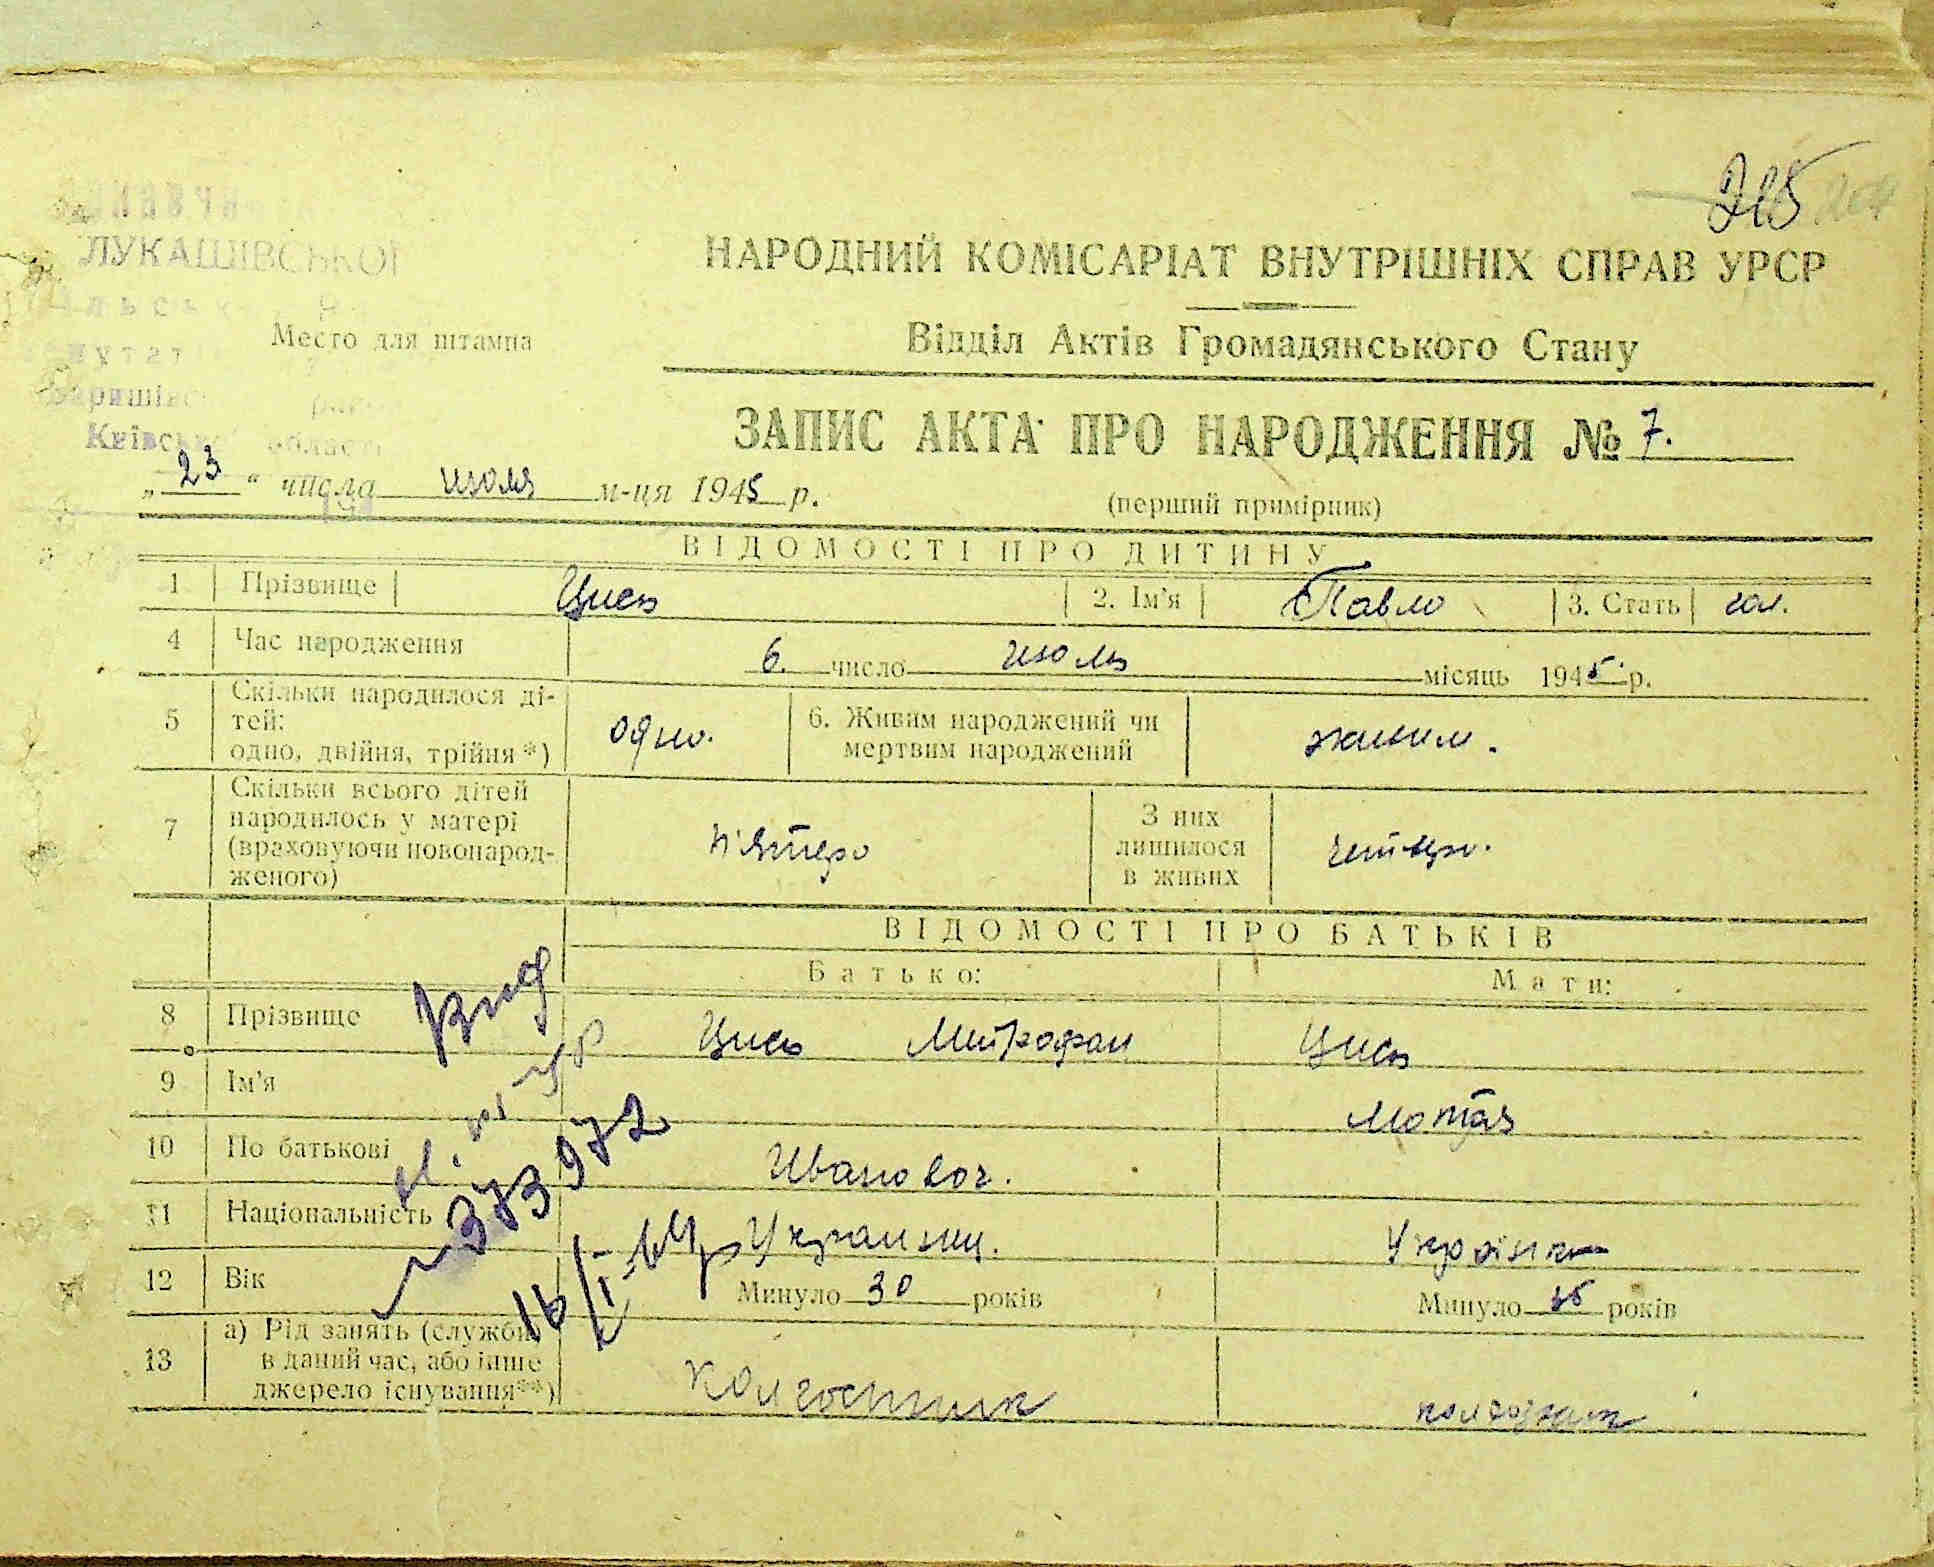 215
ЛУКАШІВСЬКОЇ
НАРОДНИЙ КОМІСАРІАТ ВНУТРІШНІХ СПРАВ УРСР
Место для штампа
Відділ Актів Громадянського Стану
Київської області
ЗАПИС АКТА ПРО НАРОДЖЕННЯ № 7.
„23“ числа июля м-ця 1945 р.
(перший примірник)
ВІДОМОСТІ ПРО ДИТИНУ
1 Прізвище Цись 2. Ім'я Павло 3. Стать чол.
4 Час народження 6. число июля місяць 1945 р.
5 Скільки народилося ді-
тей:
одно, двійня, трійня *) одно. 6. Живим народжений чи
мертвим народжений живим.
7 Скільки всього дітей
народилось у матері
(враховуючи новонарод-
женого) п'ятеро З них
лишилося
в живих четверо.
ВІДОМОСТІ ПРО БАТЬКІВ
Батько: Мати:
8 Прізвище Цись Митрофан Цись
9 Ім'я Мотря
10 По батькові Іванович.
11 Національність Украинец. Українка
12 Вік Минуло 30 років Минуло 35 років
13 а) Рід занять (служби
в даний час, або інше
джерело існування**) колгоспник
373972